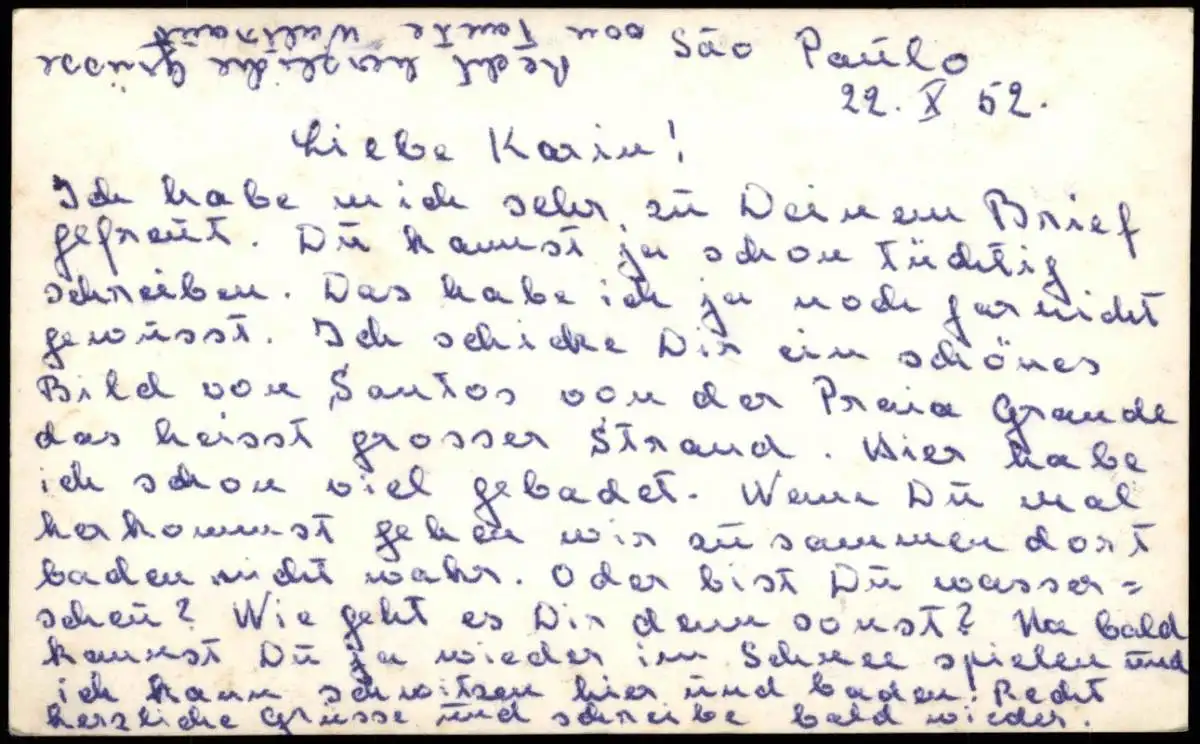 São Paulo
22. X 52.
Liebe Karin!
Ich habe mich sehr zu Deinem Brief
gefreut. Du kannst ja schon tüchtig
schreiben. Das habe ich ja noch garnicht
gewusst. Ich schicke Dir ein schönes
Bild von Santos von der Praia Grande
das heisst grosser Strand. Hier habe
ich schon viel gebadet. Wenn Du mal
herkommst gehen wir zusammen dort
baden nicht wahr. Oder bist Du wasser=
scheu? Wie geht es Dir denn sonst? Na bald
kannst Du ja wieder im Schnee spielen und
ich kann schwitzen hier und baden! Recht
herzliche Grüsse und schreibe bald wieder.
Recht herzliche Grüsse
von Tante Waltraut